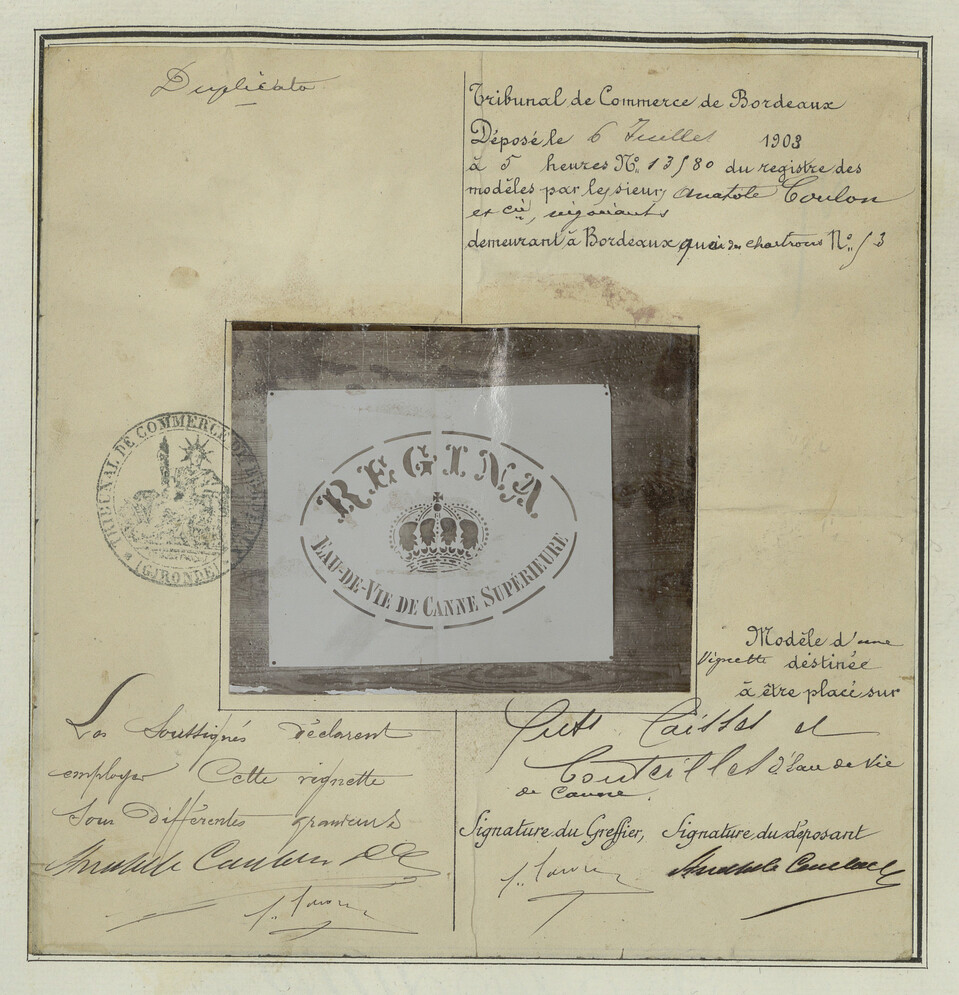 Duplicata
Tribunal de Commerce de Bordeaux
Déposé le 6 Juillet 1903
à 5 heures No. 13580 du registre des
modèles par les sieurs Anatole Coulon
et Cie, négociants
demeurant à Bordeaux quai des chartrons No. 53
TRIBUNAL DE COMMERCE DE BORDEAUX
(GIRONDE)
REGINA
EAU-DE-VIE DE CANNE SUPÉRIEURE
Modèle d'une
vignette déstinée
à être placé sur
Futs Caisses et
Bouteilles d'Eau de Vie
de Canne.
Les Soussignés déclarent
employer Cette vignette
sous Différentes grandeurs
Anatole Coulon
Signature du Greffier, Signature du déposant
Anatole Coulon